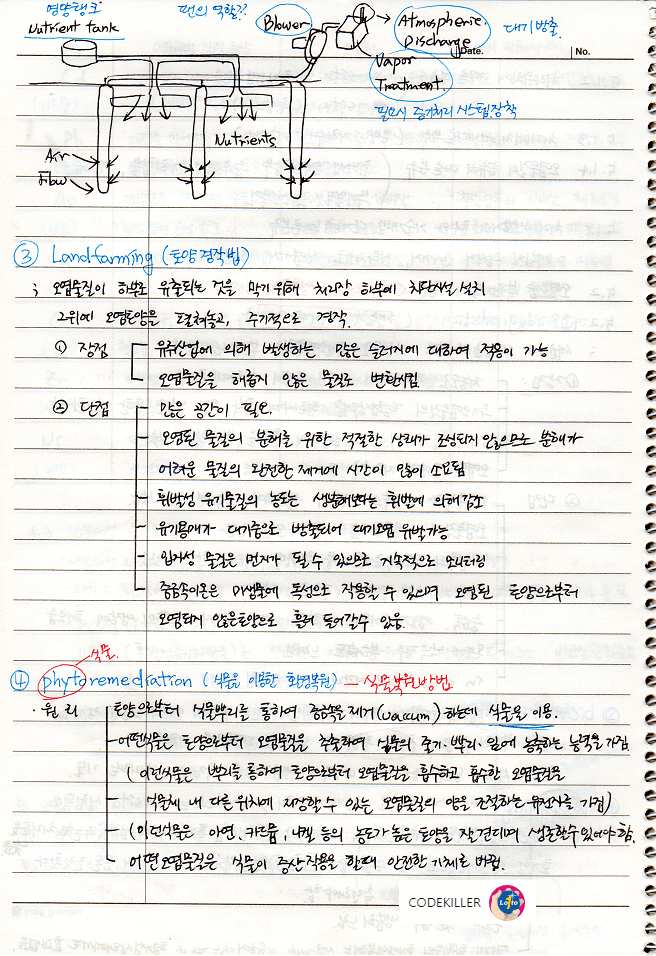 영양탱크
Nutrient tank
펜의 역할??
Blower
Atmospheric
Discharge
대기방출.
Date.
No.
Vapor
Treatment.
필요시 증기처리 시스템장착
Nutrients
Air
Flow
③ Landfarming (토양경작법)
; 오염물질이 하부로 유출되는 것을 막기 위해 처리장 하부에 차단시설 설치
그위에 오염토양을 펼쳐놓고, 주기적으로 경작.
① 장점
유류산업에 의해 발생하는 많은 슬러지에 대하여 적용이 가능
오염물질을 해롭지 않은 물질로 변환시킴
② 단점
많은 공간이 필요.
오염된 물질의 분해를 위한 적절한 상태가 조성되지 않으므로 분해가
어려운 물질의 완전한 제거에 시간이 많이 소요됨
휘발성 유기물질의 농도는 생분해보다는 휘발에 의해 감소
유기용매가 대기중으로 방출되어 대기오염 유발가능
입자성 물질은 먼지가 될 수 있으므로 지속적으로 모니터링
중금속이온은 미생물에 독성으로 작용할 수 있으며 오염된 토양으로부터
오염되지 않은토양으로 흘러 들어갈수 있음.
식물.
④ phytoremediation (식물을 이용한 환경복원) - 식물복원방법
· 원리
토양으로부터 식물뿌리를 통하여 중금속을 제거(vaccum)하는데 식물을 이용.
어떤식물은 토양으로부터 오염물질을 추출하여 식물의 줄기·뿌리·잎에 농축하는 능력을 가짐
(이런식물은 뿌리를 통하여 토양으로부터 오염물질을 흡수하고 흡수한 오염물질을
식물체 내 다른 위치에 저장할 수 있는 오염물질의 양을 조절하는 유전자를 가짐)
(이런식물은 아연, 카드뮴, 니켈 등의 농도가 높은 토양을 잘 견디며 생존할수 있어야 함.
어떤오염물질은 식물이 증산작용을 할때 안전한 기체로 버림.
CODEKILLER
Lotto